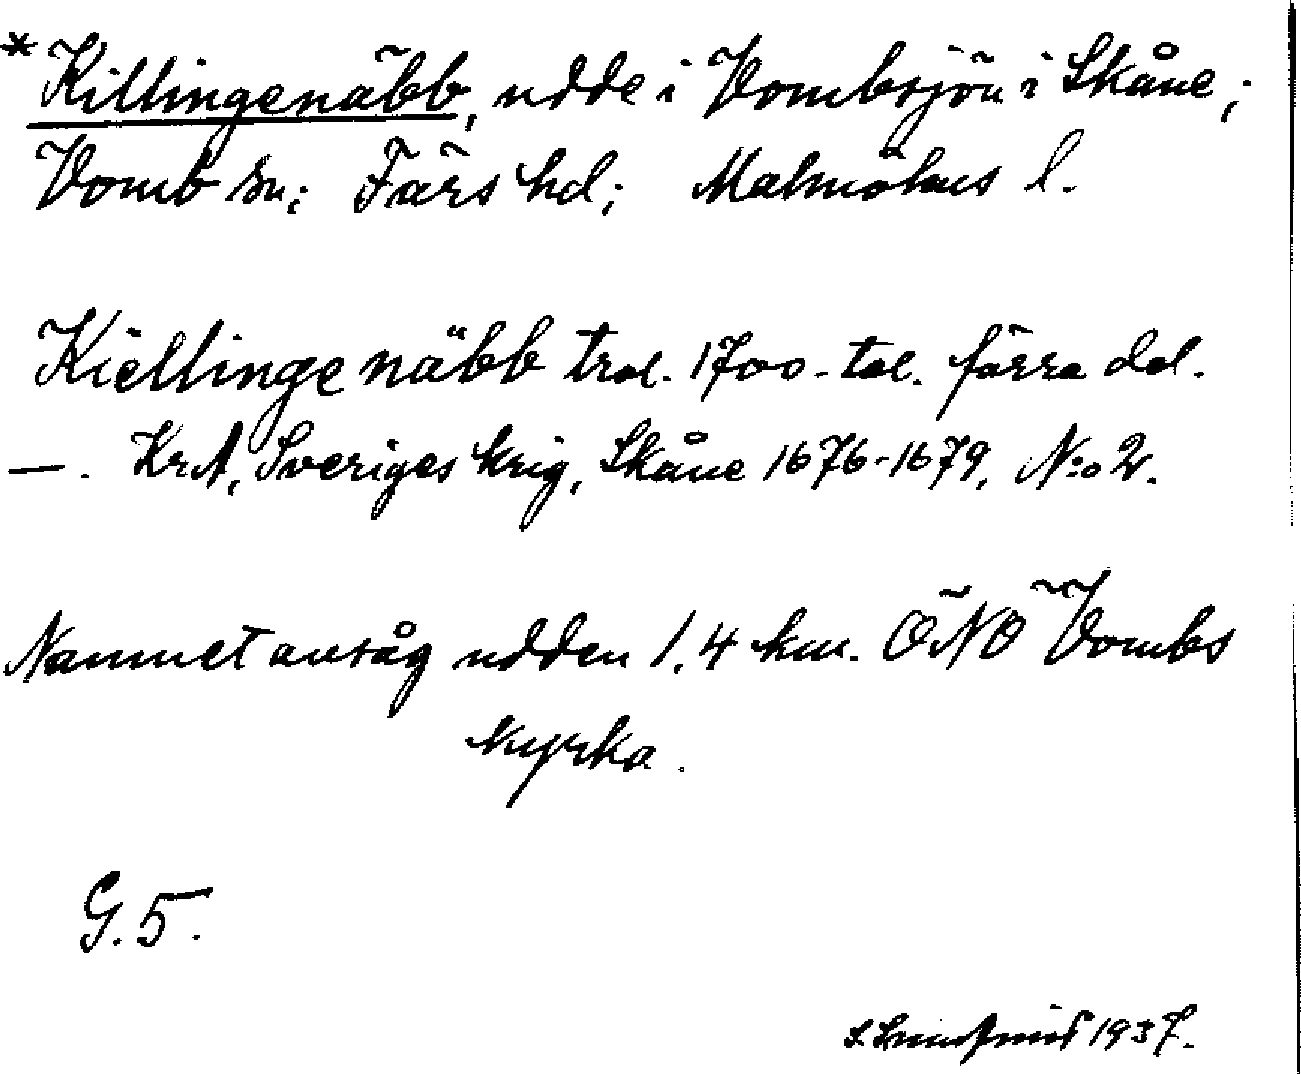 *Killingenäbb, udde i Vombsjön i Skåne;
Vomb sn; Färs hd; Malmöhus l.
Kiellinge näbb trol. 1700-tal. förra del.
—. KrA, Sveriges krig, Skåne 1676-1679, N:o 2.
Namnet avsåg udden 1,4 km. ÖNÖ Vombs
kyrka.
G. 5.
1937.